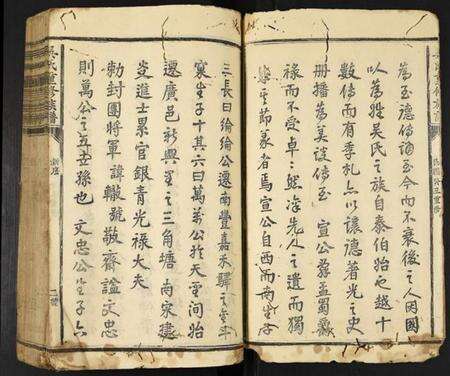 為至德傳誦至今而不衰後之人因國
以為姓吳氏之族自泰伯始也越十
數傳而有季札亦以讓德著光之史
冊播為美談傳至 宣公辭孟蜀爵
祿而不受卓之然洗先人之遺而獨
節義者焉宣公自西而南生子
三長曰綸綸公遷南豐嘉禾驛之
襄生子十其六曰萬萬公於天 間始
遷廣邑新興 之三角塘 南宋建
炎進士累官銀青光祿大夫
勅封團將軍諱轍號敬齋諡文忠
則萬公之五世孫也 文忠公生子六
吳氏重修族譜